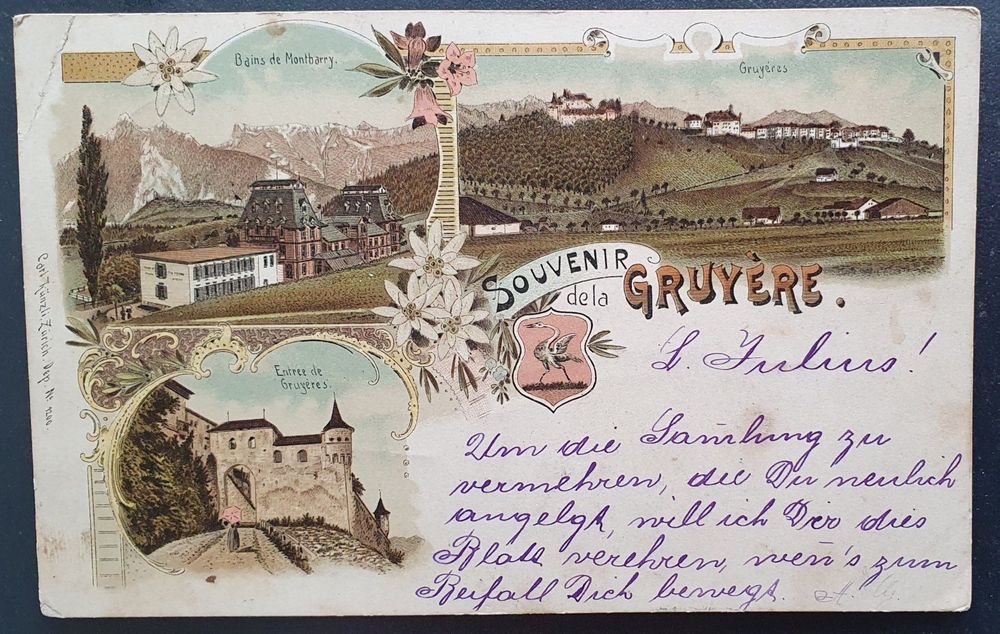 Bains de Montbarry.
Gruyéres
SOUVENIR
de la GRUYÈRE.
Entrée de
Gruyères.
Carl Künzli, Zürich, Dep. Nº 1210.
L. Julius!
Um die Sam̄lung zu
vermehren, die Du neulich
angelgt, will ich Dir dies
Blatt verehren, wen̄'s zum
Beifall Dich bewegt.